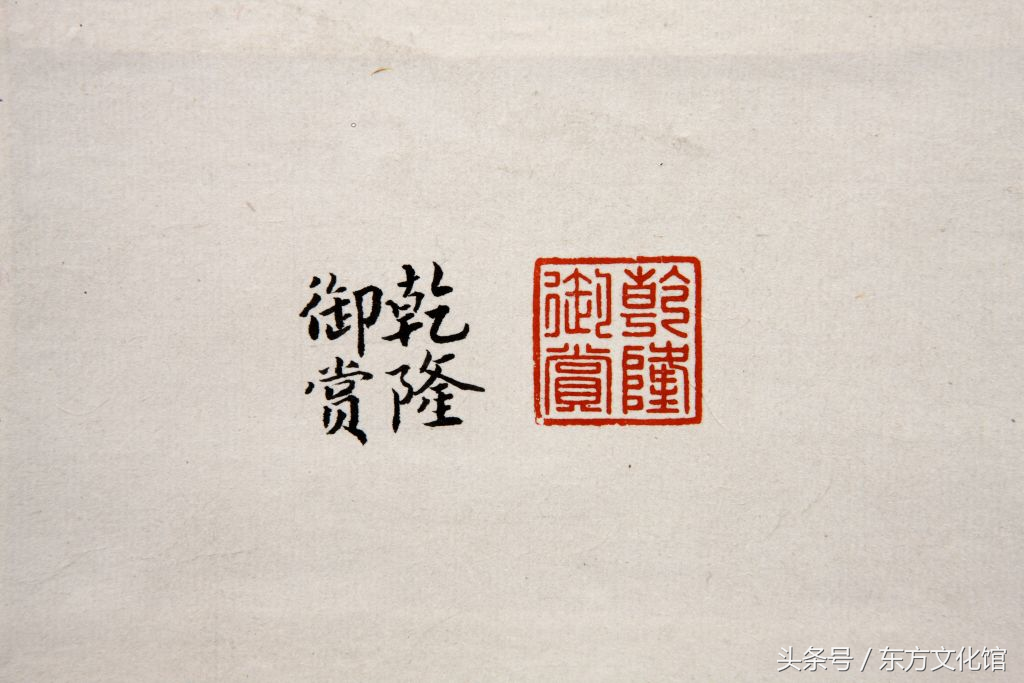 乾隆
御賞
乾隆
御賞
头条号 / 东方文化馆